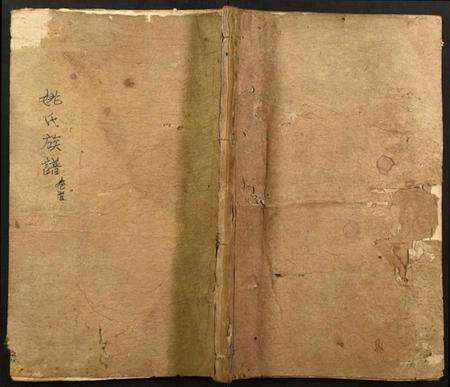 姚氏族譜